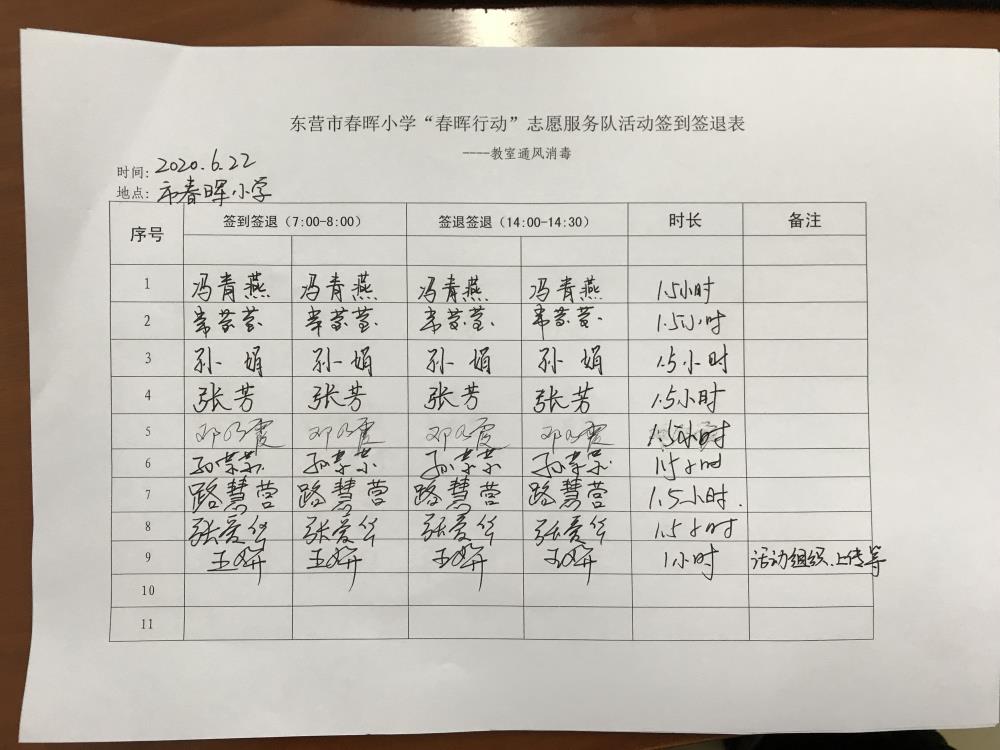 东营市春晖小学“春晖行动”志愿服务队活动签到签退表
----教室通风消毒
时间：2020.6.22
地点：市春晖小学
序号 签到签退（7:00-8:00） 签退签退（14:00-14:30） 时长 备注
1 冯青燕 冯青燕 冯青燕 冯青燕 1.5小时
2 1.5小时
3 孙娟 孙娟 孙娟 孙娟 1.5小时
4 张芳 张芳 张芳 张芳 1.5小时
5 邓乃霞 邓乃霞 邓乃霞 邓乃霞 1.5小时
6 孙荣荣 孙荣荣 孙荣荣 孙荣荣 1.5小时
7 路慧营 路慧营 路慧营 路慧营 1.5小时.
8 张爱华 张爱华 张爱华 张爱华 1.5小时
9 1小时 活动组织、上传等
10
11